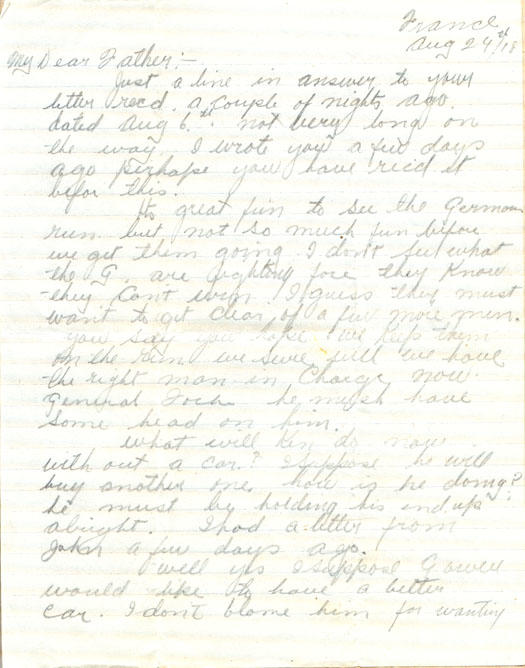 France
Aug 24th/18
My Dear Father:-
Just a line in answer to your
letter recd. a couple of nights ago.
dated Aug 6th. not very long on
the way. I wrote you a few days
ago perhaps you have rec'd it
befor this.
Its great fun to see the Germans
run but not so much fun before
we get them going. I don't see what
the G. are fighting fore they know
they can't win. I guess they must
want to get clear of a few more men.
You say you hope we keep them
on the run we sure will we have
the right man in Charge now.
General Foch he must have
some head on him.
What will Ken do now
with out a car? I suppose he will
buy another one, how is he doing?
he must be holding his end up
alright. I had a letter from
John a few days ago.
Well yes I suppose Gower
would like to have a better
car. I don't blame him for wanting